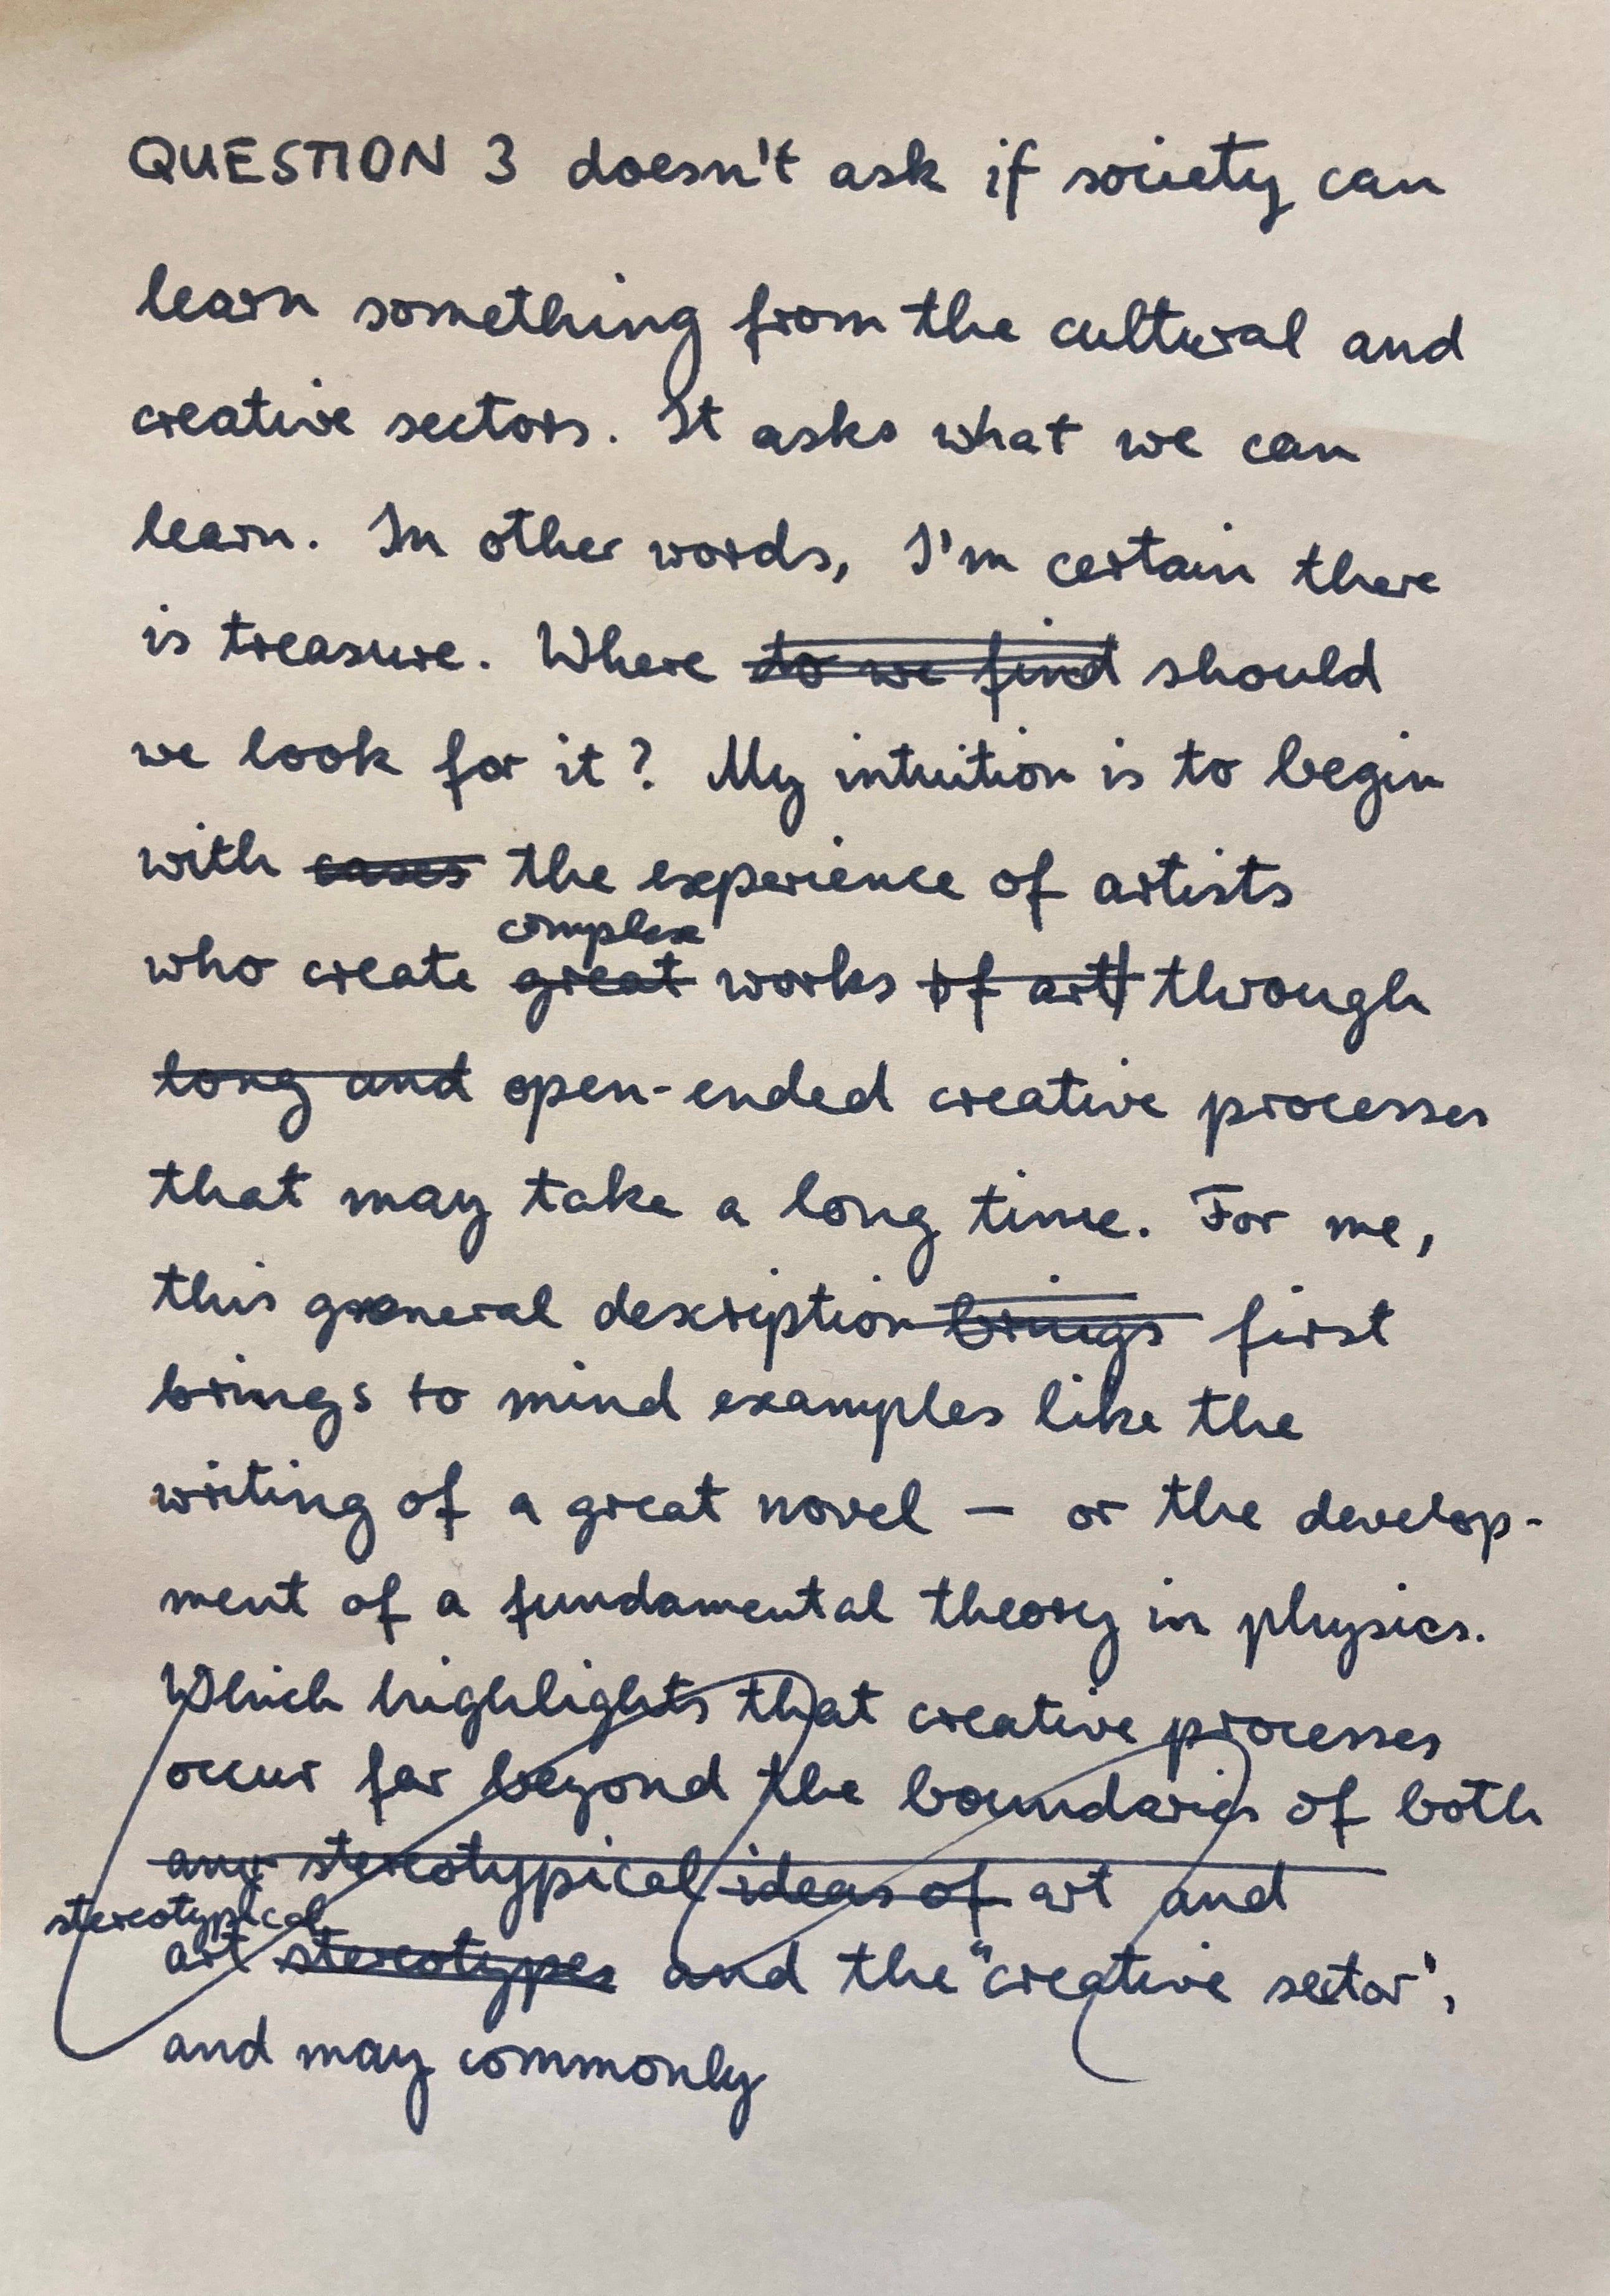 QUESTION 3 doesn't ask if society can
learn something from the cultural and
creative sectors. It asks what we can
learn. In other words, I'm certain there
is treasure. Where do we find should
we look for it? My intuition is to begin
with cases the experience of artists
complex
who create great works of art through
long and open-ended creative processes
that may take a long time. For me,
this general description brings first
brings to mind examples like the
writing of a great novel — or the develop-
ment of a fundamental theory in physics.
Which highlights that creative processes
occur far beyond the boundaries of both
any stereotypical ideas of art and
stereotypical
art stereotypes and the "creative sector",
and may commonly